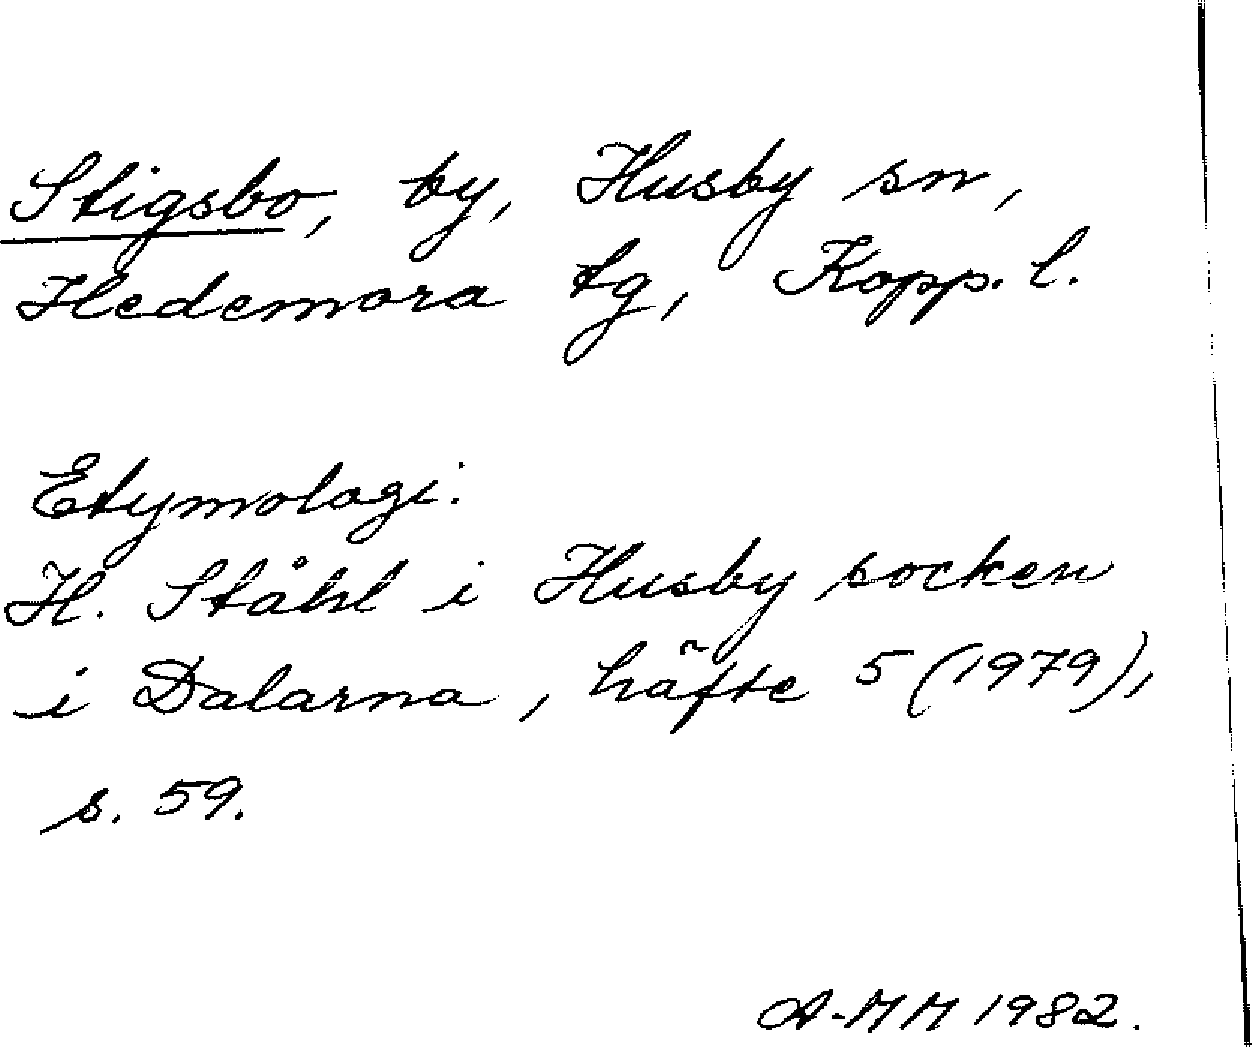 Stigsbo, by, Husby sn,
Hedemora tg, Kopp. l.
Etymologi.
H. Ståhl i Husby socken
i Dalarna, häfte 5 (1979),
s. 59.
A-MM 1982.